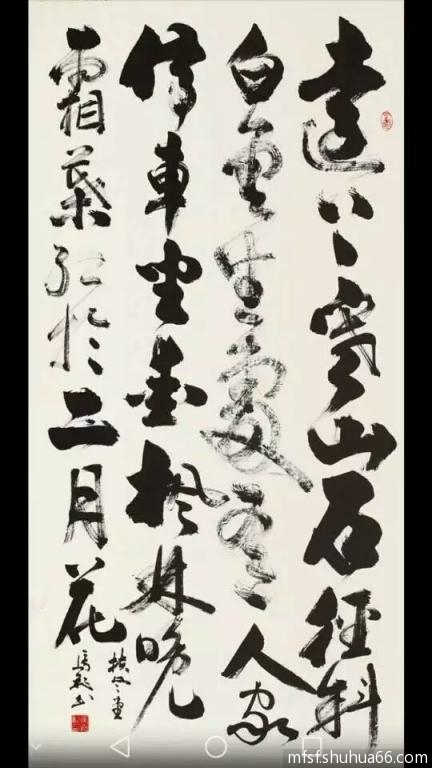 遠上寒山石徑斜
白雲生處有人家
停車坐愛楓林晚
霜葉紅於二月花
mfsf.shuhua66.com